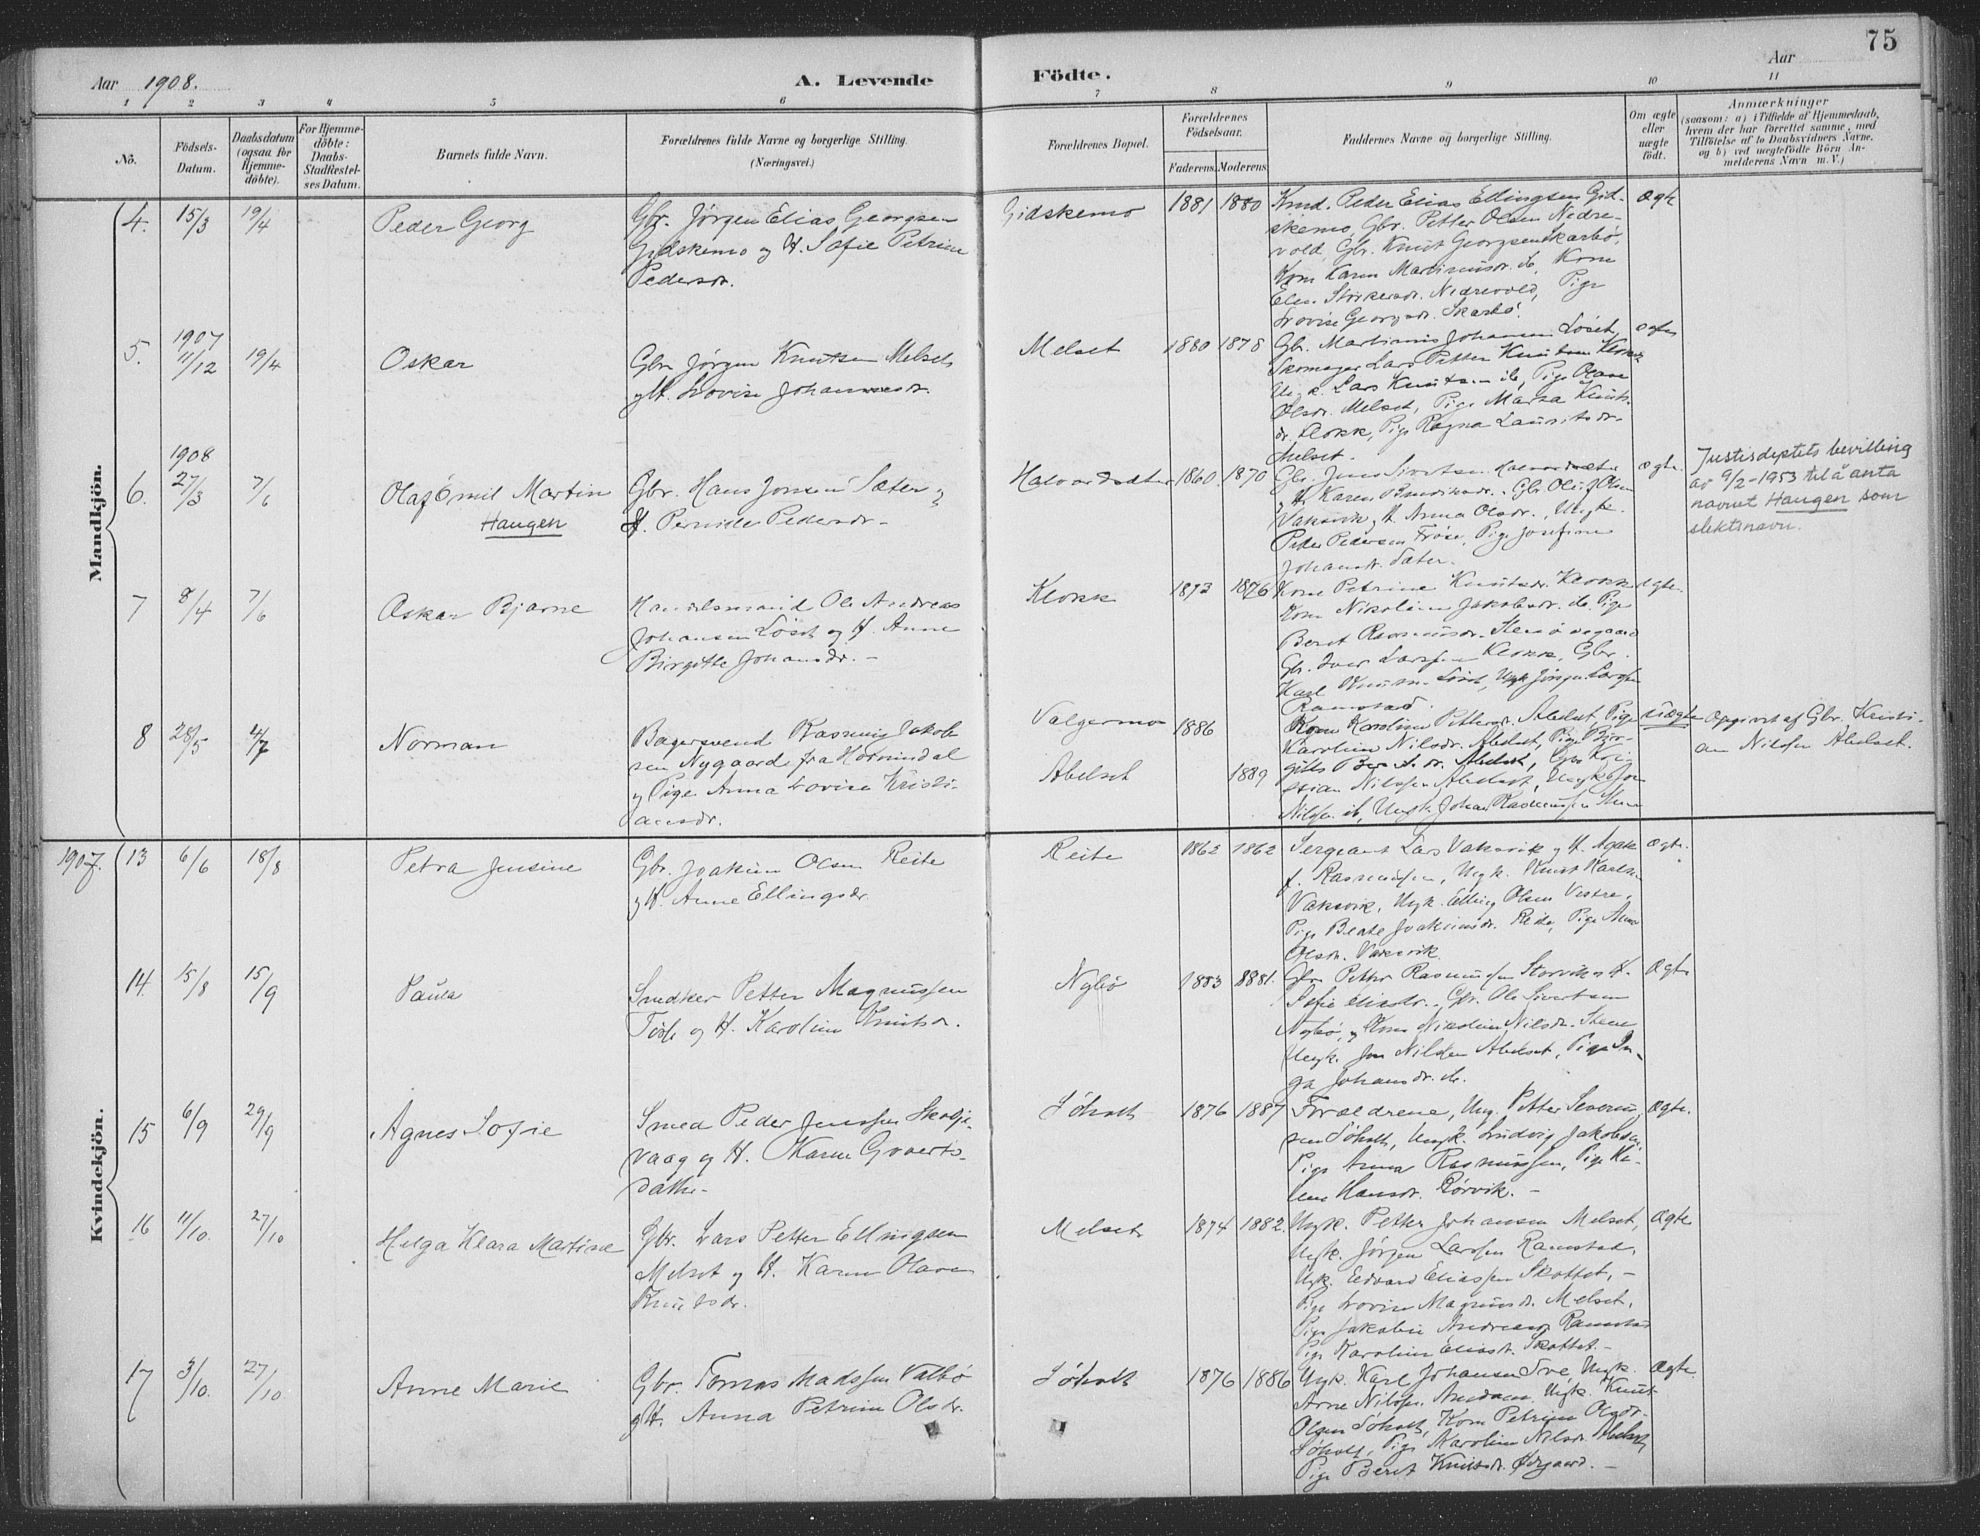 75
Aar 1908.
A. Levende
Födte.
Aar
1 2 3 4 5 6 7 8 9 10 11
No.
Födsels-
Datum.
Daabsdatum
(ogsaa for
Hjemme-
döbte).
For Hjemme-
döbte:
Daabs-
Stadfæstel-
ses Datum.
Barnets fulde Navn.
Forældrenes fulde Navne og borgerlige Stilling.
(Næringsvei.)
Forældrenes Bopæl.
Forældrenes
Födselsaar.
Faderens. Moderens.
Faddernes Navne og borgerlige Stilling.
Om ægte
eller
uægte
födt.
Anmærkninger
(saasom: a) i Tilfælde af Hjemmedaab,
hvem der har forrettet samme, med
Tilföielse af to Daabsvidners Navne.
og b) ved uegtefödte Börn An-
melderens Navn m. V.)
Mandkjön.
4. 15/3 19/4
Peder Georg
Gbr. Jörgen Elias Georgsen
Gidskemo og H. Sofie Petrine
Pedersdr.
Gidskemo
1881 1880
Kmd. Peder Elias Ellingsen Gid-
skemo, Gbr. Petter Olsen Nedre-
vold, Gbr. Knut Georgsen Skarbö,
Kone Karen Martinusdr. ib, Kone
Nedrevold, Pige
Lovise Georgsdr. Skarbö.
ægte
5. 1907
11/12 19/4
Oskar
Gbr. Jörgen Knutsen Melset
og H. Lovise Johannesdr.
Melset
1880 1878
Gbr. Martinus Johansen Löset,
Skomager Lars Petter Knutsen Klokk
Ungk. Lars Knutsen ib, Pige Olave
Olsdr. Melset, Pige Marta Knuts-
dr. Klokk, Pige Ragna Lauritsdr.
Melset.
ægte
6. 1908
27/3 7/6
Olaf Emil Martin
Haugen
Gbr. Hans Jonsen Sæter og
H. Pernille Pedersdr.-
Halvardsæter
1860 1870
Gbr. Jens Sivertsen Halvardsæter
og H. Karen Gbr. Oluf Olsen
Vaksvik og H. Anna Olsdr., Ungk.
Peder Pedersen Pige Josefine
Johansdr. Sæter.
ægte.
Justisdeptets bevilling
av 9/2-1953 til å anta
navnet Haugen som
slektsnavn.
7 8/4 7/6
Oskar Bjarne
Handelsmand Ole Andreas
Johansen Löset og H. Anne
Birgitte Johansdr. -
Klokk
1873 1876
Kone Petrine Knutsdr. Klokk
Kone Nikoline Jakobsdr. ib. Pige
Beret Rasmusdr.
Gbr. Iver Larssen Klokk, Gbr.
Karl Knutsen Löset, Ungk. Jörgen Larssen
Ramstad.
ægte.
8 28/5 4/7
Norman
Bagersvend Rasmus Jakob-
sen Nygaard fra Hornindal
og Pige Anna Lovise Kristi-
ansdr.
Valgermo
Abelset
1886
1889
Kone Karoline Pettersdr. Abelset, Pige
Karoline Nilsdr. Abelset, Pige Bir-
gitte Abelset, Gbr. Kri-
stian Nilssen Abelset, Ungk.
Nilssen ib, Ungk. Johan Rasmussen
uægte
Opgivet af Gbr. Kristi-
an Nilssen Abelset.
Kvindekjön.
1907. 13 6/6 18/8
Petra Jensine
Gbr. Joakim Olsen Reite
og H. Anne Ellingsdr.
Reite
1862 1862
Sergeant Lars Vaksvik og H. Agate
f. Rasmussen, Ungk. Knut Karlsen
Vaksvik, Ungk. Elling Olsen Vestre,
Pige Beate Joakimsdr. Reite, Pige Anna
Olsdr. Vaksvik.
Ægte.
14. 15/8 15/9
Paula
Snedker Petter Magnussen
og H. Karoline Knutsdr.
Nybö
1883 1881.
Gbr. Petter Rasmussen Storvik og H.
Sofie Eliasdr., Gbr. Ole Sivertsen
Nybö, og Kone Nikoline Nilsdr.
Ungk. Jon Nilssen Abelset, Pige In-
ga Johansdr. ib.
Ægte
15 6/9 29/9
Agnes Sofie
Smed Peder Jenssen Skotje-
vaag og H. Karen
datter-
Söholt
1876 1887
Forældrene, Ung. Petter Severin-
sen Söholt, Ungk. Ludvig Jakobsen
Pige Anna Rasmussen, Pige He-
lene Hansdr. Rörvik. -
Ægte.
16 11/10. 27/10
Helga Klara Martine
Gbr. Lars Petter Ellingsen
Melset og H. Karen Olave
Knutsdr.
Melset
1874 1882.
Ungk. Petter Johansen Melset,
Ungk. Jörgen Larssen Ramstad,
Ungk. Edvard Eliassen Skottet, -
Pige Lovise Magnusdr. Melset,
Pige Jakobine Andreasdr. Ramstad
Pige Karoline Eliasdr. Skottet -
Ægte
17 3/10. 27/10
Anne Marie
Gbr. Tomas Madssen Valbö
og H. Anna Petrine Olsdr.
Söholt
1876 1886
Ungk. Karl Johansen Ungk.
Arne Nilssen Amdam, Ungk. Knut
Olsen Söholt, Kone Petrine Olsdr.
Söholt, Pige Karoline Nilsdr. Abelset,
Pige Beret Knutsdr. Ødegaard. -
Ægte